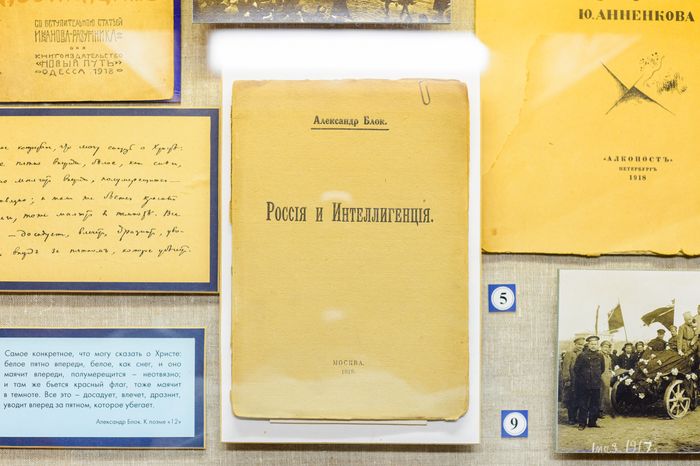 СО ВСТУПИТЕЛЬНОЮ СТАТЬЕЙ
ИВАНОВА-РАЗУМНИКА
КНИГОИЗДАТЕЛЬСТВО
«НОВЫЙ ПУТЬ»
ОДЕССА 1918
Ю. АННЕНКОВА
«АЛКОНОСТЪ»
ПЕТЕРБУРГЪ
1918
Александръ Блокъ.
Россія и Интеллигенція.
МОСКВА.
что могу сказать о Христе:
пятно впереди, белое, как снег,
маячит впереди, полумерещится –
там же бьется красный
тоже маячит в темноте. Все
– досадует, влечет, дразнит, уво-
за пятном, которое убегает.
Самое конкретное, что могу сказать о Христе:
белое пятно впереди, белое, как снег, и оно
маячит впереди, полумерещится – неотвязно;
и там же бьется красный флаг, тоже маячит
в темноте. Все это – досадует, влечет, дразнит,
уводит вперед за пятном, которое убегает.
Александр Блок. К поэме «12»
5
9
1 мая 1917 г.